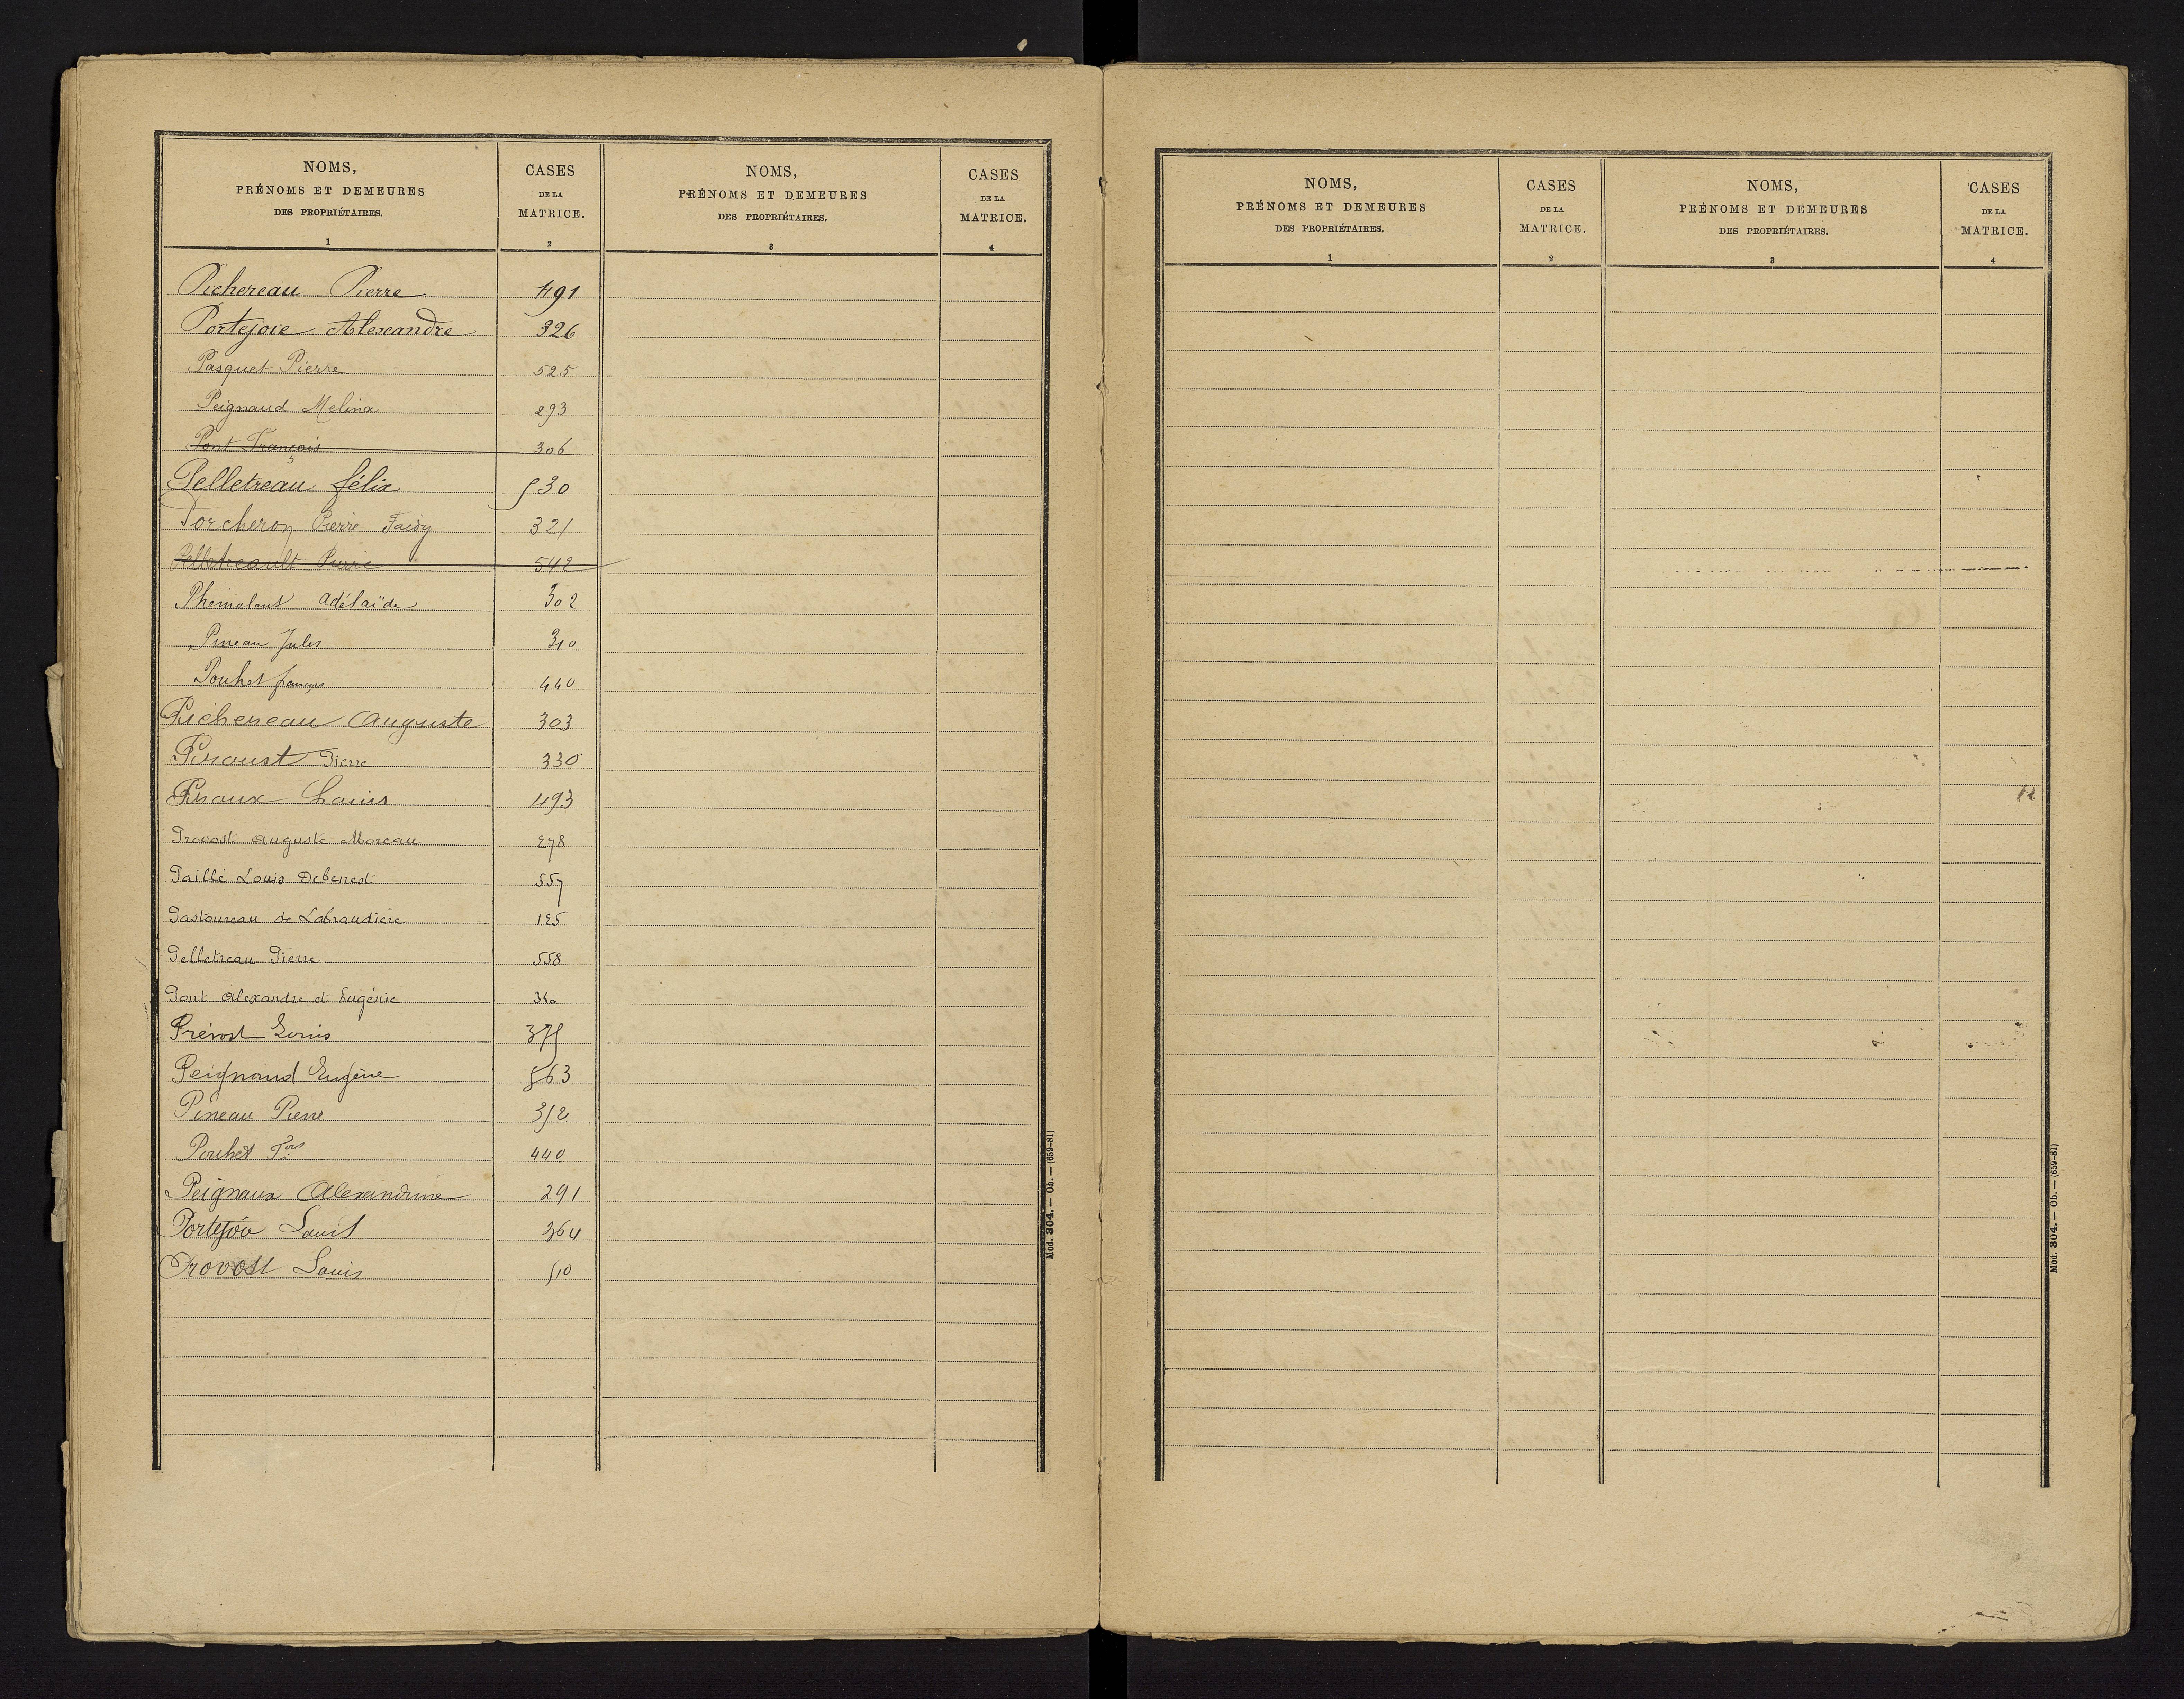 NOMS,
PRÉNOMS ET DEMEURES
DES PROPRIÉTAIRES.
1
CASES
DE LA
MATRICE.
2
NOMS,
PRÉNOMS ET DEMEURES
DES PROPRIÉTAIRES.
3
CASES
DE LA
MATRICE.
4
Pichereau Pierre 491
Portejoie Alexandre 326
Pasquet Pierre 525
Peignaud Melina 293
Pont François 306
Pelletreau félix 530
Porcheron Pierre Faidy 321
Pelletreault Pierre 542
Adélaïde 302
Pineau Jules 310
Pouhet françois 440
Pichereau Auguste 303
Pierre 330
Louis 493
Provost Auguste Moreau 278
Paillé Louis Debenest 557
Pastoureau de Labraudière 125
Pelletreau Pierre 558
Pont Alexandre et Eugénie
Prévost Louis 375
Peignaud Eugène 563
Pineau Pierre 312
Pouhet Fois 440
Peignaux Alexandrine 291
Portejoie Louis 364
Provost Louis 510
Mod. 304. — Ob. — (659-81)
NOMS,
PRÉNOMS ET DEMEURES
DES PROPRIÉTAIRES.
1
CASES
DE LA
MATRICE.
2
NOMS,
PRÉNOMS ET DEMEURES
DES PROPRIÉTAIRES.
3
CASES
DE LA
MATRICE.
4
Mod. 304. — Ob. — (659-81)